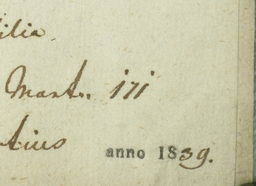 ilia
Mart. 171
tius
anno 1839.